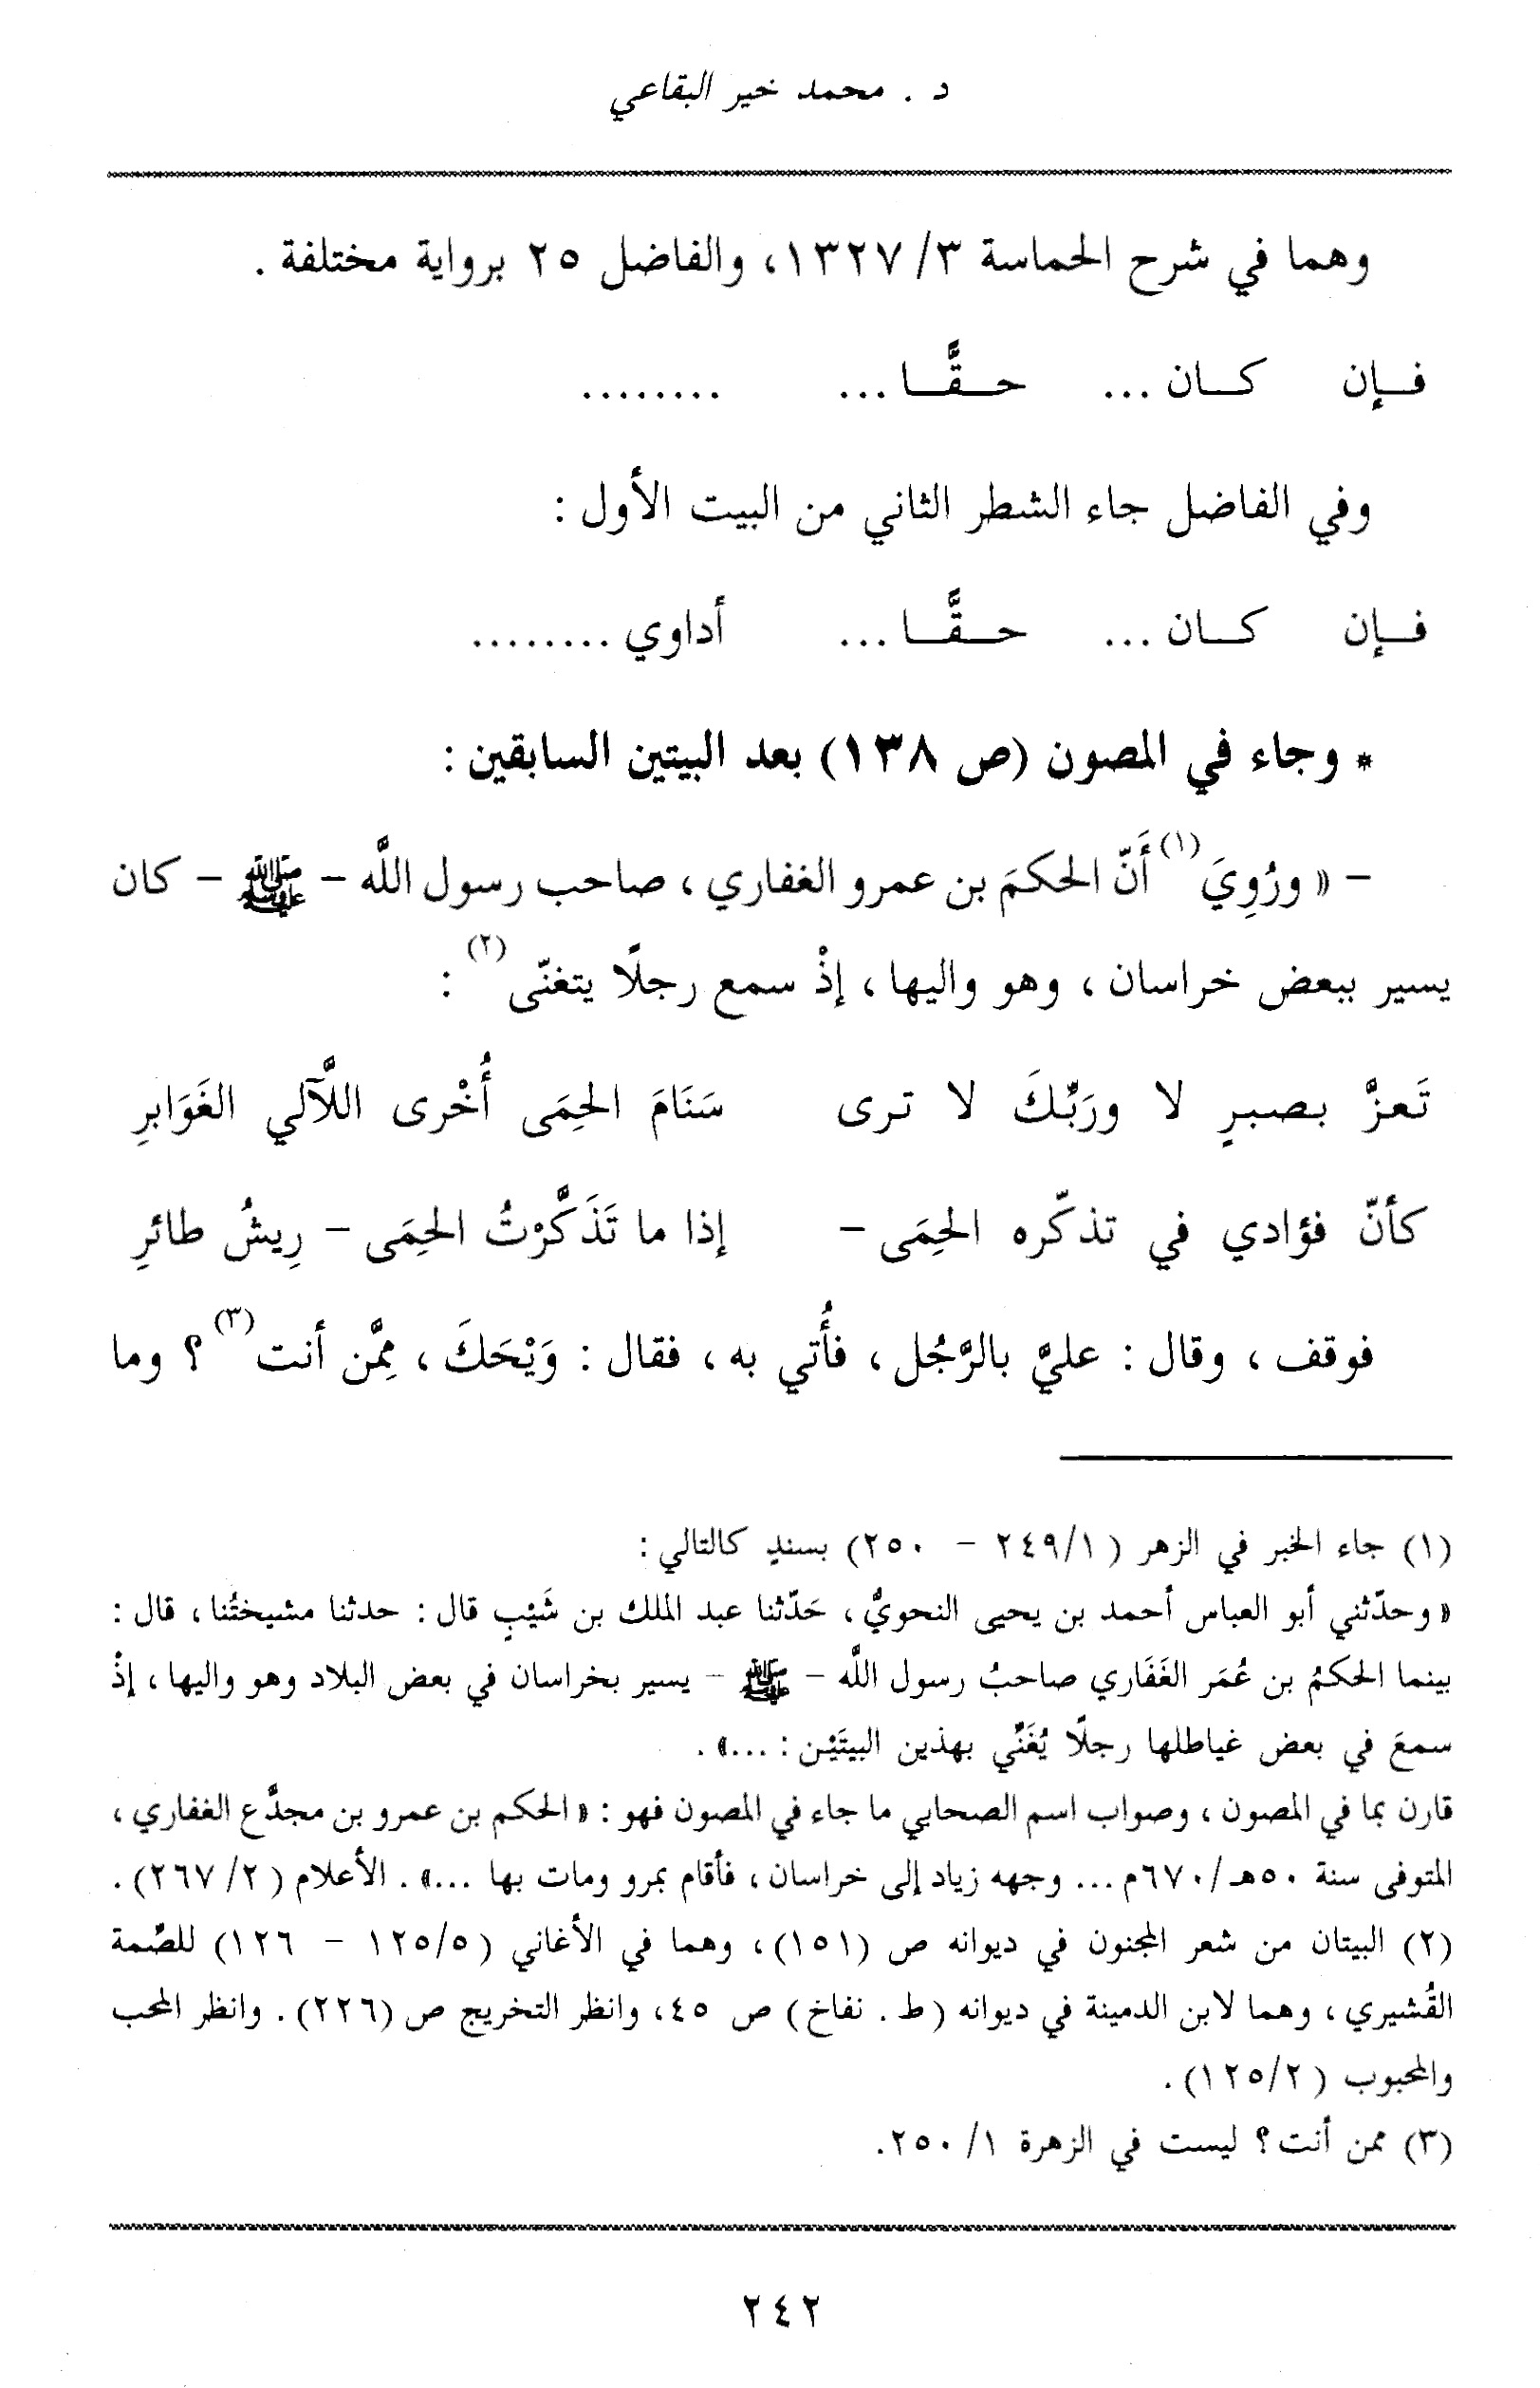 د . محمد خير البقاعي
وهما في شرح الحماسة ٣/ ١٣٢٧، والفاضل ٢٥ برواية مختلفة .
فــإن كــان ... حــقًّــا ... ........
وفي الفاضل جاء الشطر الثاني من البيت الأول :
فــإن كــان ... حــقًّــا ... أداوي ........
* وجاء في المصون (ص ١٣٨) بعد البيتين السابقين :
– « ورُوِيَ(١) أَنّ الحكمَ بن عمرو الغفاري ، صاحب رسول اللَّه – ﷺ – كان
يسير ببعض خراسان ، وهو واليها ، إذْ سمع رجلًا يتغنّى(٢) :
تَعزَّ بصبرٍ لا ورَبِّكَ لا ترى سَنَامَ الحِمَى أُخْرى اللَّآلي الغَوَابرِ
كأنّ فؤادي في تذكّره الحِمَى – إذا ما تَذَكَّرْتُ الحِمَى – رِيشُ طائرِ
فوقف ، وقال : عليَّ بالرَّجُل ، فأُتي به ، فقال : وَيْحَكَ ، مِمَّن أنت(٣) ؟ وما
(١) جاء الخبر في الزهر ( ٢٤٩/١ – ٢٥٠) بسندٍ كالتالي :
« وحدّثني أبو العباس أحمد بن يحيى النحويُّ ، حَدّثنا عبد الملك بن شَيْبٍ قال : حدثنا مشيختُنا ، قال :
بينما الحكمُ بن عُمَر الغَفَاري صاحبُ رسول اللَّه – ﷺ – يسير بخراسان في بعض البلاد وهو واليها ، إذْ
سمعَ في بعض غياطلها رجلًا يُغَنِّي بهذين البيتَيْن : ...» .
قارن بما في المصون ، وصواب اسم الصحابي ما جاء في المصون فهو : « الحكم بن عمرو بن مجدَّع الغفاري ،
المتوفى سنة ٥٠هـ/٦٧٠م ... وجهه زياد إلى خراسان ، فأقام بمرو ومات بها ...» . الأعلام ( ٢/ ٢٦٧) .
(٢) البيتان من شعر المجنون في ديوانه ص (١٥١) ، وهما في الأغاني (١٢٥/٥ – ١٢٦) للصِّمة
القُشيري ، وهما لابن الدمينة في ديوانه ( ط . نفاخ ) ص ٤٥، وانظر التخريج ص (٢٢٦) . وانظر المحب
والمحبوب ( ١٢٥/٢) .
(٣) ممن أنت ؟ ليست في الزهرة ١/ ٢٥٠.
٢٤٢